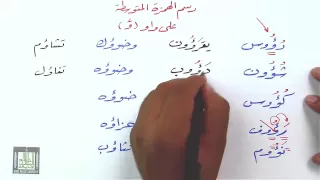 رسم الهمزة المتوسطة
على واو (ؤ)
رُؤُوس يقرَؤُون وضوؤك تشاؤم
شُؤُون دَؤُوب وضوؤه تفاؤل
كُؤُوس ضوؤه
رَؤُوف
نَؤُوم